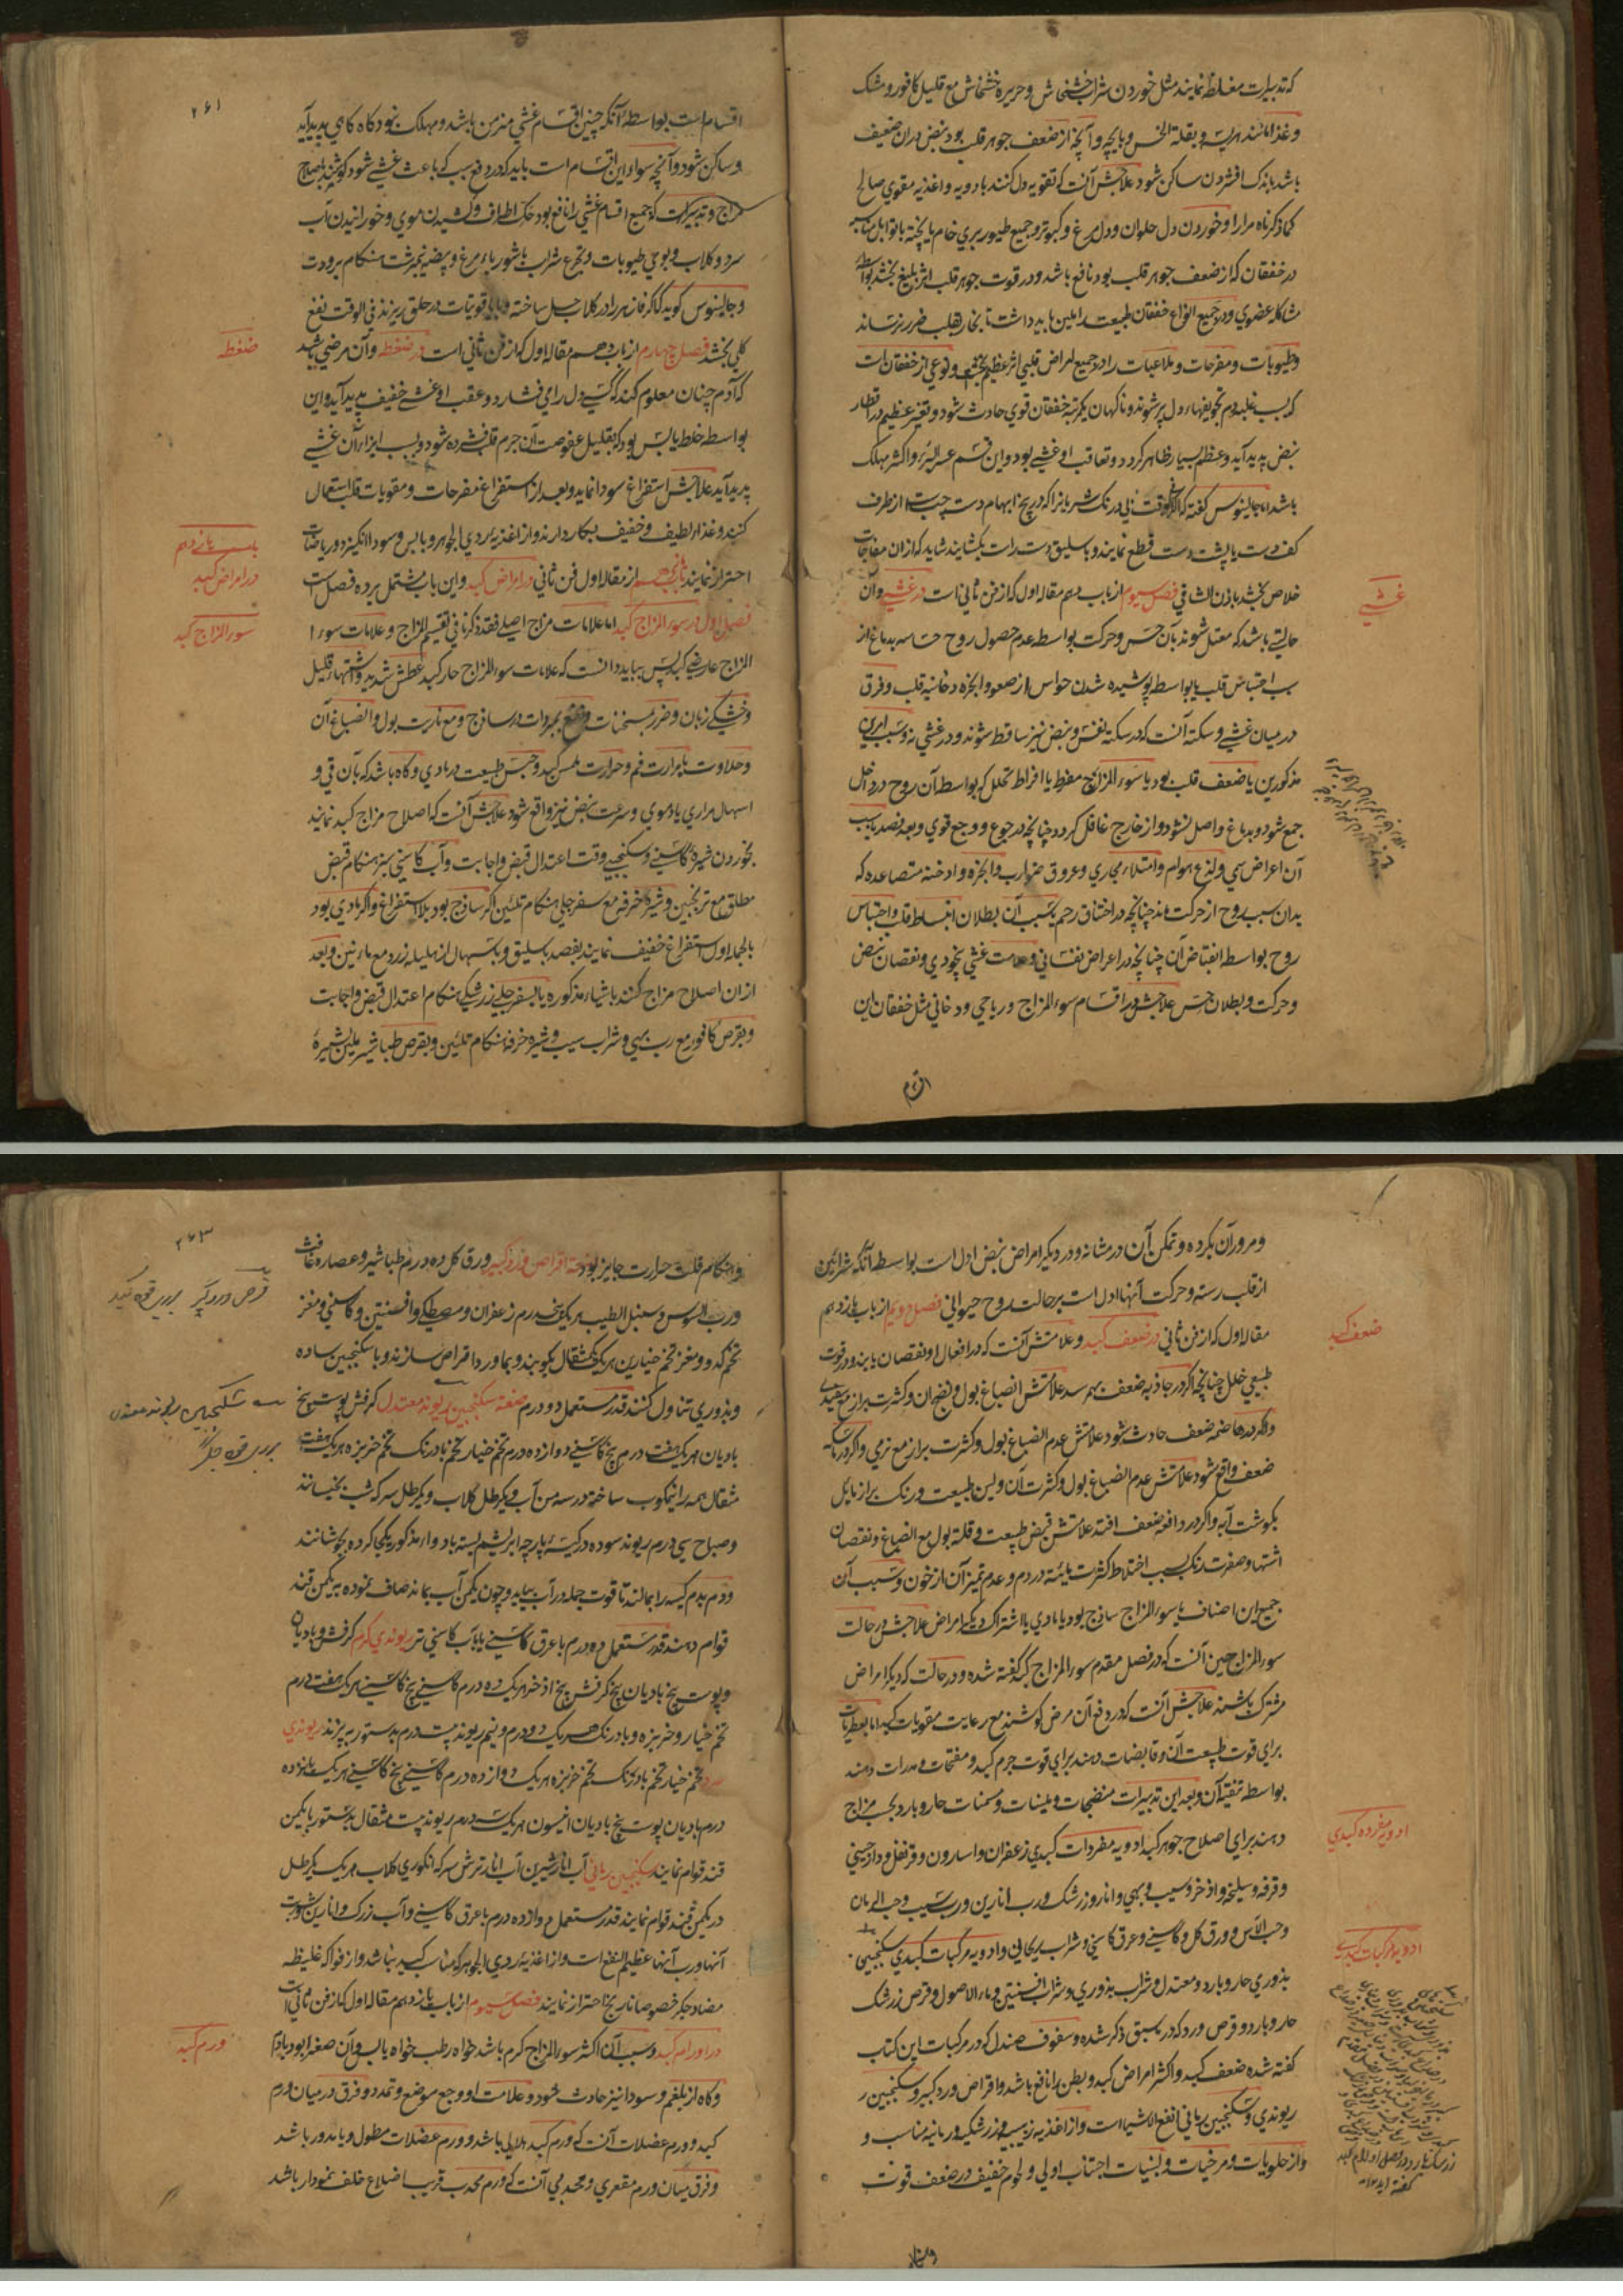 که تدبیرات مغلظه نمایند مثل خوردن شراب خشخاش و حریره خشخاش مع قلیل کافور و مشک
و غذا مانند هریسه و بقلة الحس و پایچه و آنچه از ضعف جوهر قلب بود نبض دران ضعیف
باشد باندک افشردن ساکن شود علاجش آنست که تقویه دل کنند بادویه و اغذیه مقوی صالح
کما ذکرناه مرارا و خوردن دل حلوان و دل مرغ و کبوتر و جمیع طیور بری خام یا پخته با توابل مناسبه
در خفقان که از ضعف جوهر قلب بود نافع باشد و در قوت جوهر قلب اثر بلیغ بخشد بواسطه
مشاکله عضوی و در جمیع انواع خفقان طبیعت را لین باید داشت تا بخار بقلب ضرر نرساند
و طیوبات و مفرحات و ملاعبات را در جمیع امراض قلبی اثر عظیم بخشد و نوعی از خفقان است
که بسبب غلبه دم تجویفهاء دل پر شوند و ناکهان یکمرتبه خفقان قوی حادث شود و تغیر عظیم در اقطار
نبض پدید آید و عظم بسیار ظاهر کردد و تعاقب او غشی بود و این قسم عسر البرء و اکثر مهلک
باشد اما جالینوس گفته که اگر در وقت فی درنک شریانرا که در بیخ ابهام دست چپ است از طرف
کف دست یا پشت دست قطع نمایند و باسلیق دست راست بکشایند شاید که ازان مفاجات
خلاص بخشد باذن الشافی فصل سیوم از باب دهم مقاله اول که از فن ثانی است در غشی و آن
حالتی باشد که معطل شوند بآن حس و حرکت بواسطه عدم حصول روح حساسه بدماغ از
سبب احتباس قلب یا بواسطه پوشیده شدن حواس از صعود ابخره دخانیه قلب و فرق
در میان غشی و سکته آنست که در سکته نفس و نبض نیز ساقط شوند و در غشی نه و سبب امرین
مذکورین یا ضعف قلب بود یا سوء المزاج مفرط یا افراط تحلل که بواسطه آن روح در داخل
جمع شود و بدماغ واصل نشود و از خارج غافل کردد چنانچه در جوع و وجع قوی و بعد فصد یا بسبب
آن اعراض سمی و لذع هوام و امتلاء مجاری و عروق ضوارب و ابخره و ادخنه متصاعده که
بدان سبب روح از حرکت ماند چنانچه در اختناق رحم یا سبب آن بطلان انبساط قلب و احتباس
روح بواسطه انقباض آن چنانچه در اعراض نفسانی و علامت غشی بیخودی و نقصان نبض
و حرکت و بطلان حس علاجش در اقسام سوء المزاج و ریاحی و دخانی مثل خفقان این
غشی
اقسام
۲۶۱
اقسام است بواسطه آنکه چنین اقسام غشی مزمن باشد و مهلک نبود کاه کاهی پدید آید
و ساکن شود و آنچه سواء این اقسام است باید که در دفع سبب که باعث غشی شود کوشند باصلاح
مزاج و تدبیرات که جمیع اقسام غشی را نافع بود حک اطراف و کشیدن موی و خورانیدن آب
سرد و کلاب و بوی طیوبات و تجرع شراب با شورباء مرغ و بیضه نیمبرشت هنکام برودت
و جالینوس کوید که اکر فادزهر را در کلاب حل ساخته با قوتیات در حلق ریزند فی الوقت نفع
کلی بخشد فصل چهارم از باب دهم مقاله اول که از فن ثانی است در ضغطه و آن مرضی باشد
که آدم چنان معلوم کند که کسی دل را می فشارد و عقب او غشی خفیف پدید آید و این
بواسطه خلط یابس بود که بقلیل عفوصت آن جرم قلب فشرده شود و بسبب ایذاء آن غشی
پدید آید علاجش استفراغ سودا نماید و بعد از استفراغ مفرحات و مقویات قلب استعمال
کنند و غذاء لطیف و خفیف بکار دارند و از اغذیه ردی الجوهر و یابس و سودا انکیز دور ریاضات
احتراز نمایند باب یازدهم از مقاله اول فن ثانی در امراض کبد و این باب مشتمل بر ده فصل است
فصل اول در سوء المزاج کبد اما علامات مزاج اصلی فقد ذکرنا فی تقسیم المزاج و علامات سوء ا
المزاج عارضی کبد پس بباید دانست که علامات سوء المزاج حار کبد عطش شدید و اشتهاء قلیل
و خشکی زبان و ضرر بمسخنات و نفع بمبردات در ساذج و مع ناریت بول و انصباغ آن
و حلاوت یا مرارت فم و حرارت ملمس کبد و حبس طبیعت در مادی و کاه باشد که بآن قی و
اسهال مراری یا دموی و سرعت نبض نیز واقع شود علاجش آنست که اصلاح مزاج کبد نمایند
بخوردن شیره کاسنی و سکنجبین وقت اعتدال قبض و اجابت و آب کاسنی سبز هنکام قبض
مطلق مع ترنجبین و شیره خرفه مع سفرجلی هنکام تلئین اکر ساذج بود بلا استفراغ و اکر مادی بود
بالجمله اول استفراغ خفیف نمایند بفصد باسلیق و باسهال از هلیله زرد مع ماء تین و بعد
ازان اصلاح مزاج کنند باشیاء مذکوره یا بسفرجلی زرشکی هنکام اعتدال قبض و اجابت
و بقرص کافور مع رب بهی و شراب سیب و شیره خرفه هنکام تلئین و بقرص طباشیر ملین بشیره
ضغطه
باب یازدهم
در امراض کبد
سوء المزاج کبد
و مرور آن بکرده و تمکن آن در مثانه و در دیکر امراض نبض ادل است بواسطه آنکه شرائین
از قلب رسته و حرکت آنها ادل است بر حالت روح حیوانی فصل دویم از باب یازدهم
مقاله اول که از فن ثانی در ضعف کبد و علامتش آنست که در افعال او نقصان یابند و در قوت
طبیعی خلل چنانچه اکر در جاذبه ضعف بهم رسد علامتش انصباغ بول و نضج آن و کثرت براز مع سفیدی
و اکر در هاضمه ضعف حادث شود علامتش عدم انصباغ بول و کثرت براز مع نرمی و اکر در ماسکه
ضعف واقع شود علامتش عدم انصباغ بول و کثرت آن و لین طبیعت و رنک براز مایل
بکوشت آبه و اکر در دافعه ضعف افتد علامتش قبض طبیعت و قلة بول مع انصباغ و نقصان
اشتها و صفرت رنک بسبب اختلاط کثرت مائیة در دم و عدم تمیز آن از خون و سبب آن
جمیع این اصناف یا سوء المزاج ساذج بود یا مادی یا اشتراک دیکر امراض علاجش در حالت
سوء المزاج همین آنست که در فصل مقدم سوء المزاج کبد گفته شده و در حالت که دیکر امراض
مشترک باشند علاجش آنست که در دفع آن مرض کوشند مع رعایت مقویات کبد اما بعطریات
برای قوت طبیعت آن و قابضات دهند برای قوت جرم کبد و مفتحات و مدرات دهند
بواسطه تنقیه آن و بعد این تدبیرات منضجات و ملینات و مسخنات حار و بارد بحسب مزاج
دهند برای اصلاح جوهر کبد ادویه مفردات کبدی زعفران و اسارون و قرنفل و دارچینی
و قرفه و سلیخه و اذخر و سیب و بهی و انار و زرشک و رب انارین و رب سیب و حب الرمان
و حب الآس و ورق کل و کاسنی و عرق کاسنی و شراب ریحانی و ادویه مرکبات کبدی سکنجبین
بذوری حار و بارد و معتدل و شراب بذوری و شراب افسنتین و ماء الاصول و قرص زرشک
حار و بارد و قرص ورد که در سبق ذکر شده و سفوف صندل که در مرکبات این کتاب
گفته شده ضعف کبد و اکثر امراض کبد و بطن را نافع باشد و اقراص ورد کبیر و سکنجبین ر
ریوندی و سکنجبین رمانی انفع الاشیا است و از اغذیه زبیبیه و زرشکیه و رمانیه مناسب و
و از حلویات و مرخیات و لبنیات اجتناب اولی و لحوم خفیف در ضعف قوت
ضعف کبد
ادویه مفرده کبدی
ادویه مرکبات کبدی
۲۶۳
و هنکام قلت حرارت جایز بود صفة اقراص ورد کبیر ورق کل ده درم طباشیر و عصاره غافث
و رب السوس و سنبل الطیب هر یک پنجدرم زعفران و مصطکی و افسنتین و کاسنی و مغز
تخم کدو و مغز تخم خیارین هر یک یکمثقال بکوبند و بماء ورد اقراص سازند و با سکنجبین ساده
و بذوری تناول کنند قدر مستعمل دو درم صفة سکنجبین ریوند معتدل کرفش پوست بیخ
بادیان هر یک هفت درم بیخ کاسنی دوازده درم تخم خیار تخم بادرنک تخم خربزه هر یک هفت
مثقال همه را نیمکوب ساخته در سه من آب و یکرطل کلاب و یکرطل سرکه شب بخیسانند
و صباح سی درم ریوند سوده در کیسه پارچه ابریشم بسته با دواء مذکور یکجا کرده بجوشانند
و دم بدم کیسه را بمالند تا قوت جمله در آب بیاید و چون یکمن آب بماند صاف نموده به یکمن قند
قوام دهند قدر مستعمل ده درم با عرق کاسنی یا بآب کاسنی تر ریوندی کرم کرفش و بادیان
و پوست بیخ بادیان بیخ کرفش بیخ اذخر هر یک ده درم کاسنی بیخ کاسنی هر یک هفت درم
تخم خیار و خربزه و بادرنک هر یک دو درم و نیم ریوند بیست درم بدستور بپزند ریوندی
سرد تخم خیار تخم بادرنک تخم خربزه هر یک دوازده درم کاسنی بیخ کاسنی هر یک پانزده
درم بادیان پوست بیخ بادیان انیسون هر یک سه درم ریوند بیست مثقال بدستور با یکمن
قند قوام نمایند سکنجبین رمانی آب انار شیرین آب انار ترش سرکه انکوری کلاب هر یک یکرطل
در یکمن قند قوام نمایند قدر مستعمل دوازده درم با عرق کاسنی و آب زرشک و انارین شوربت
آنها و رب آنها عظیم النفع است و از اغذیه ردی الجوهر که مناسب کبد نباشد و از فواکه غلیظه
مضاد جکر خصوصا نارنج احتراز نمایند فصل سیوم از باب یازدهم مقاله اول که از فن ثانی است
در اورام کبد و سبب آن اکثر سوء المزاج کرم باشد خواه رطب خواه یابس و آن صفرا بود یا دم
و کاه از بلغم و سودا نیز حادث شود و علامت او وجع موضع و تمدد و فرق در میان ورم
کبد و ورم عضلات آنست که ورم کبد هلالی باشد و ورم عضلات مطول و یا مدور باشد
و فرق میان ورم مقعری و محدبی آنست که ورم محدب قریب اضلاع خلف نمودار باشد
قرص ورد کبیر برای قوة کبد
سکنجبین ریوند معتدل
برای قوة جکر
ورم کبد